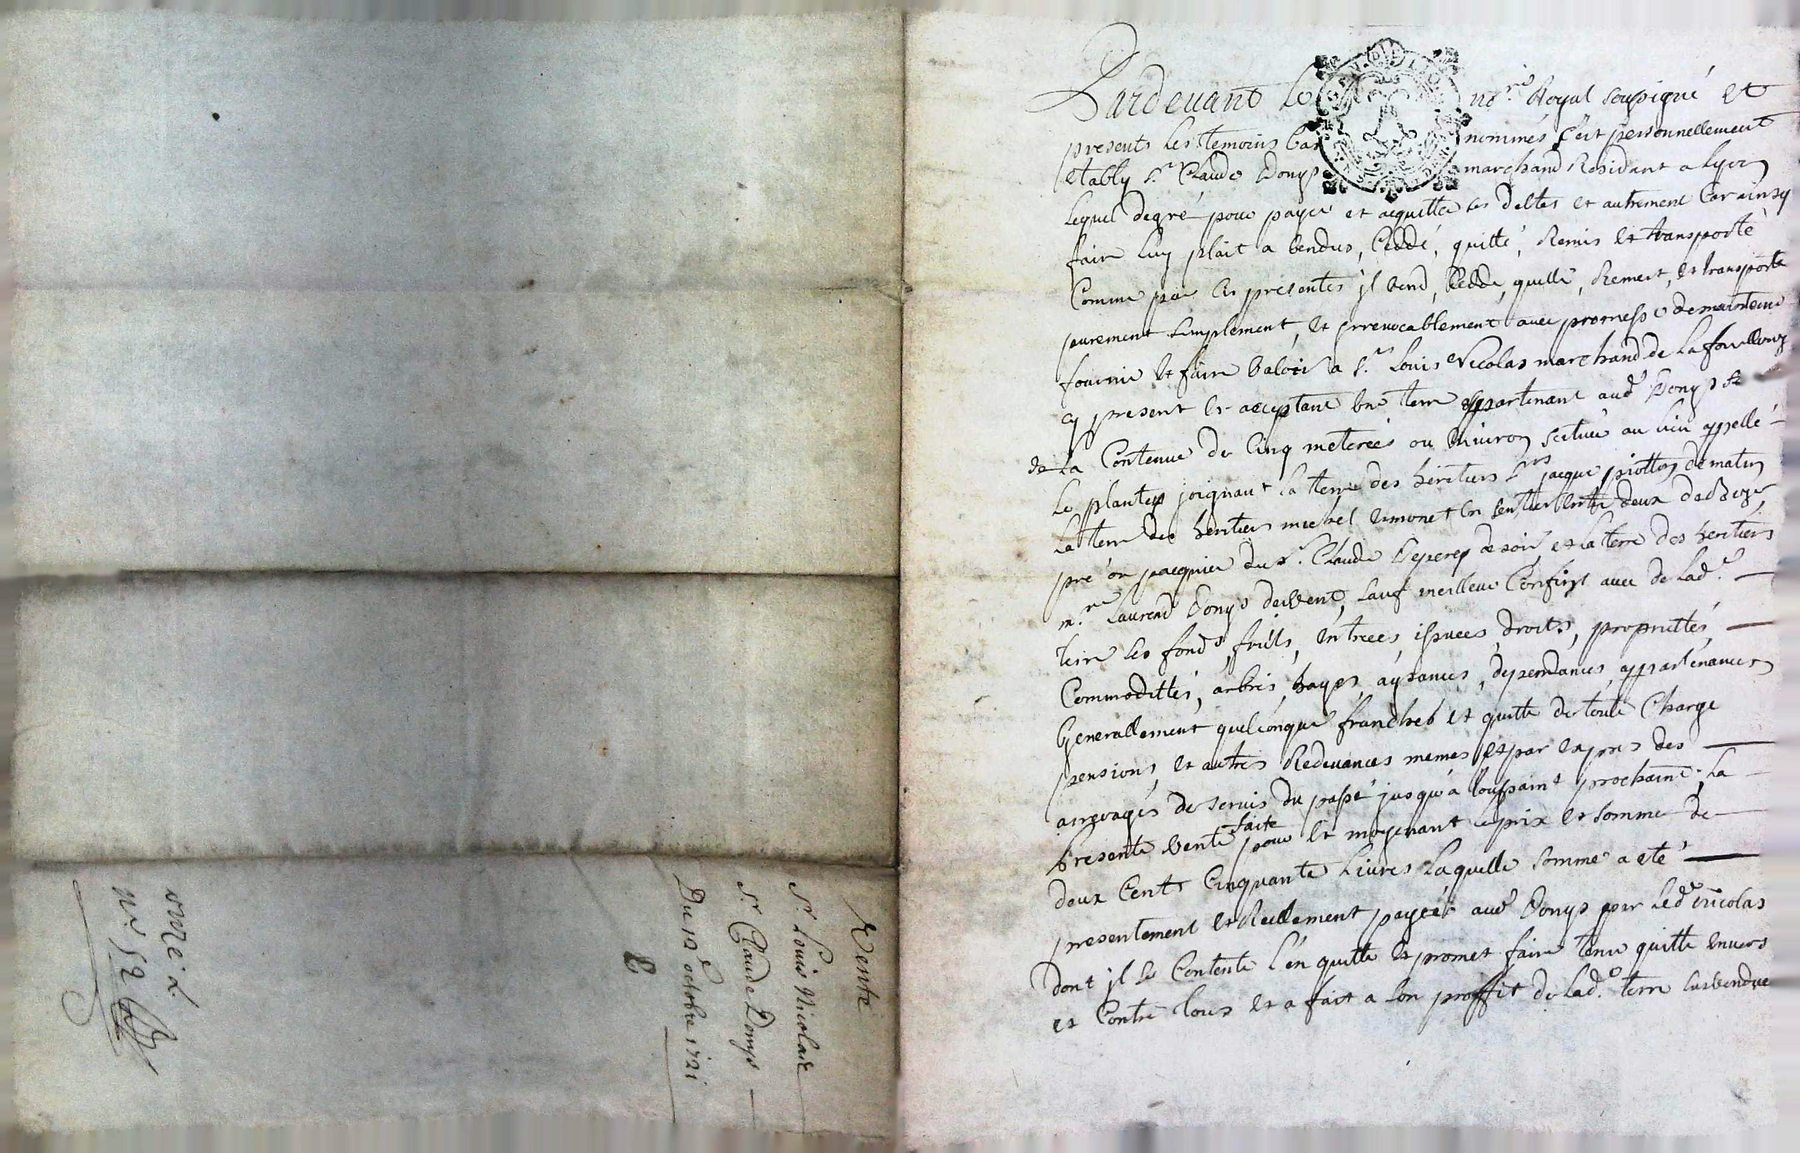 Pardevant Le no.re Royal soussigné et
presents les temoins bas nommés s'est personnellement
etably S.r Claude Donys marchand Residant a Lyon
Lequel degré pour payer et acquitter ses debtes et autrement Car ainsy
faire luy plait a vendus, Ceddé, quitté, Remis et transporté
Comme par ces presentes jl vend, Cedde, quitte, Remet, et transporte
purement simplement et jrrevocablement avec promesse de maintenir
fournir et faire valoir a S.r Louis Nicolas marchand de La
cy present et acceptant une terre appartenant aud. Donys
de la Contenue de Cinq meterées ou Environ scituée au lieu appellé
Le joignant la terre des heritiers S.r jacque de matin
la terre des heritiers michel un sentier entre deux de bize
pré ou paquier du S.r Claude de soir et la terre des heritiers
m.re Laurend Donys de vent, sauf meilleur Confins avec de lad.e
terre ses fonds, fruits, entrées, issuees, droits, proprietés,
Commodittés, arbres, hayes, aysances, dependances, appartenances
Generallement quelconque franches et quitte de toute Charge
pensions, et autres Redevances memes et par expres des
arrerages de servis du passé jusqu'a toussaint prochaine; La
Presente vente faite pour et moyenant le prix et somme de
deux Cents Cinquante Livres Laquelle somme a eté
presentement et Reellement payée aud. Donys par led. Nicolas
dont jl se Contente l'en quitte et promet faire tenir quitte envers
et Contre tous et a fait a son proffit de lad.e terre susvendue
Vente
S.r Louis Nicolas
S.r Claude Donys
Du 12e octobre 1721
n.o 52